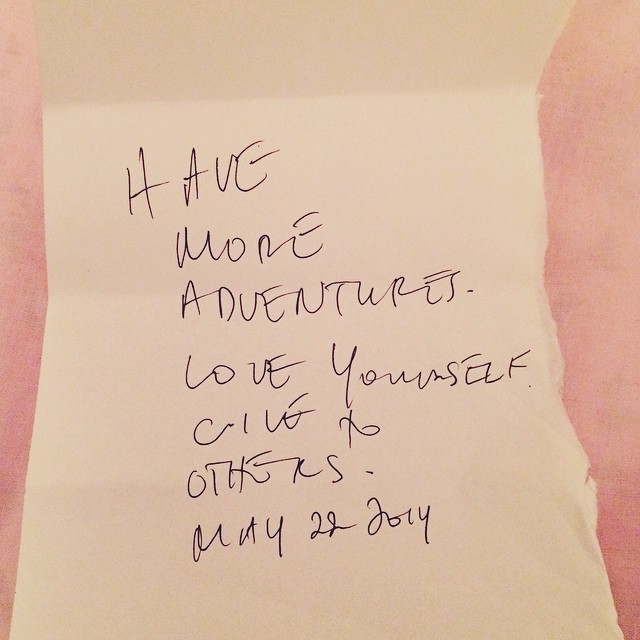 HAVE
MORE
ADVENTURES.
LOVE YOURSELF.
GIVE to
OTHERS.
MAY 22 2014